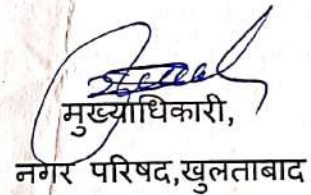 मुख्याधिकारी,
नगर परिषद,खुलताबाद